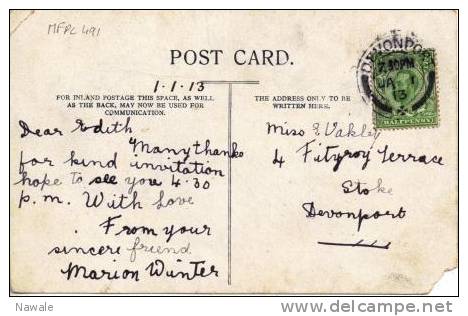 MFPL 491
POST CARD.
1.1.13
FOR INLAND POSTAGE THIS SPACE, AS WELL
AS THE BACK, MAY NOW BE USED FOR
COMMUNICATION.
Dear Edith
Many thanks
for kind invitation
hope to see you 4.30
p.m. With Love
From your
sincere friend
Marion Wunter
THE ADDRESS ONLY TO BE
WRITTEN HERE.
Miss E. Vakley
4 Fitzroy Terrace
Stoke
Devonport
DEVONPO
7.30PM
JA 1
13
HALFPENNY
Nawale
delcampe.net